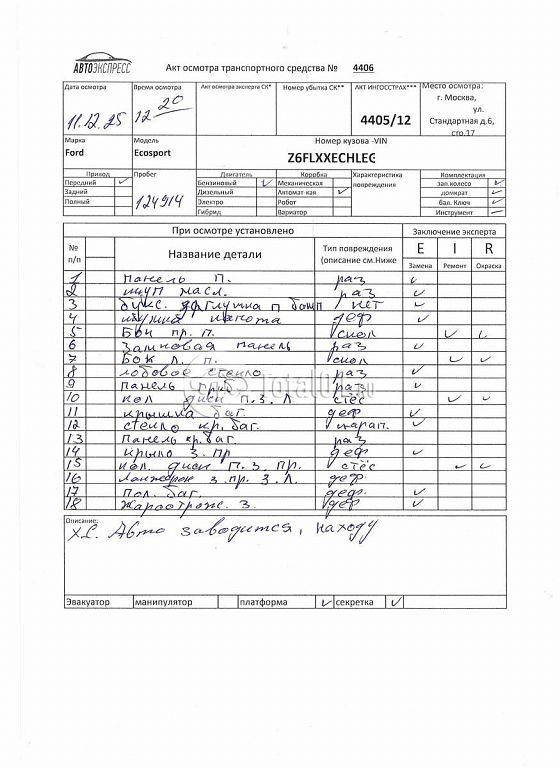 АВТОЭКСПРЕСС
Акт осмотра транспортного средства № 4406
Дата осмотра Время осмотра Акт осмотра эксперта СК* Номер убытка СК** АКТ ИНГОССТРАХ*** Место осмотра:
11.12.25 12 20 4405/12 г. Москва, ул. Стандартная д.6, стр.17
Марка Модель Номер кузова -VIN
Ford Ecosport Z6FLXXECHLEG
Привод Пробег Двигатель Коробка Характеристика повреждения Комплектация
Передний ✓ 124914 Бензиновый ✓ Механическая зап.колесо ✓
Задний Дизельный Автомат-кая ✓ домкрат ✓
Полный Электро Робот бал. Ключ ✓
Гибрид Вариатор Инструмент
При осмотре установлено Заключение эксперта
№ п/п Название детали Тип повреждения (описание см.Ниже E I R
Замена Ремонт Окраска
1 панель п. раз ✓
2 щуп масл. раз ✓
3 букс. заглушка п нет ✓
4 капота деф ✓
5 Бок пр. п. скол ✓
6 Замковая панель раз ✓
7 Бок л. п. скол ✓ ✓
8 лобовое стекло раз ✓
9 панель приб. раз ✓
10 кол диск п.з. Л стёс ✓ ✓
11 крышка баг. деф ✓
12 стекло кр. баг. царап. ✓
13 Панель кр. баг. раз
14 крыло з. пр деф ✓
15 кол. диск п. з. пр. стёс ✓ ✓
16 Лонжерон з. пр. з. Л. деф.
17 Пол. баг. деф. ✓
18 Жароотраж. з. деф ✓
Описание:
Авто заводится, на ходу
Эвакуатор манипулятор платформа ✓ секретка ✓